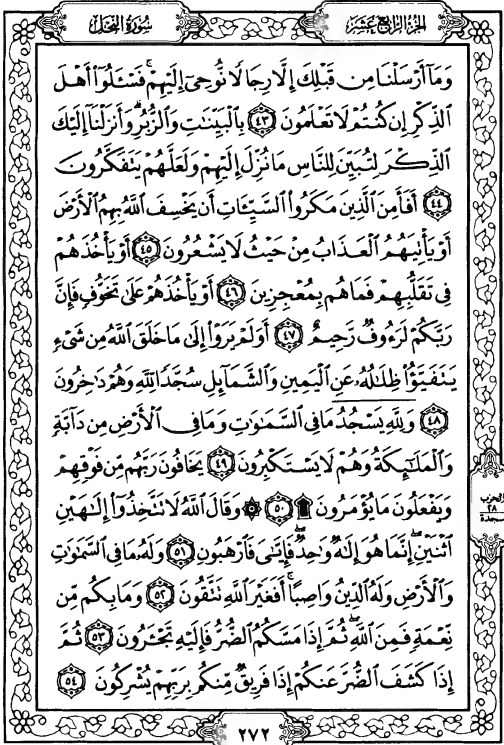 سُورَةُ النَّحْلِ
الجُزْءُ الرَّابِعَ عَشَرَ
وَمَآ أَرْسَلْنَا مِن قَبْلِكَ إِلَّا رِجَالًا نُّوحِىٓ إِلَيْهِمْ ۚ فَسْـَٔلُوٓا۟ أَهْلَ
ٱلذِّكْرِ إِن كُنتُمْ لَا تَعْلَمُونَ ٤٣ بِٱلْبَيِّنَٰتِ وَٱلزُّبُرِ ۗ وَأَنزَلْنَآ إِلَيْكَ
ٱلذِّكْرَ لِتُبَيِّنَ لِلنَّاسِ مَا نُزِّلَ إِلَيْهِمْ وَلَعَلَّهُمْ يَتَفَكَّرُونَ
٤٤ أَفَأَمِنَ ٱلَّذِينَ مَكَرُوا۟ ٱلسَّيِّـَٔاتِ أَن يَخْسِفَ ٱللَّهُ بِهِمُ ٱلْأَرْضَ
أَوْ يَأْتِيَهُمُ ٱلْعَذَابُ مِنْ حَيْثُ لَا يَشْعُرُونَ ٤٥ أَوْ يَأْخُذَهُمْ
فِى تَقَلُّبِهِمْ فَمَا هُم بِمُعْجِزِينَ ٤٦ أَوْ يَأْخُذَهُمْ عَلَىٰ تَخَوُّفٍ فَإِنَّ
رَبَّكُمْ لَرَءُوفٌ رَّحِيمٌ ٤٧ أَوَلَمْ يَرَوْا۟ إِلَىٰ مَا خَلَقَ ٱللَّهُ مِن شَىْءٍ
يَتَفَيَّؤُا۟ ظِلَٰلُهُۥ عَنِ ٱلْيَمِينِ وَٱلشَّمَآئِلِ سُجَّدًا لِّلَّهِ وَهُمْ دَٰخِرُونَ
٤٨ وَلِلَّهِ يَسْجُدُ مَا فِى ٱلسَّمَٰوَٰتِ وَمَا فِى ٱلْأَرْضِ مِن دَآبَّةٍ
وَٱلْمَلَٰٓئِكَةُ وَهُمْ لَا يَسْتَكْبِرُونَ ٤٩ يَخَافُونَ رَبَّهُم مِّن فَوْقِهِمْ
وَيَفْعَلُونَ مَا يُؤْمَرُونَ ۩ ٥٠ ۞ وَقَالَ ٱللَّهُ لَا تَتَّخِذُوٓا۟ إِلَٰهَيْنِ
ٱثْنَيْنِ ۖ إِنَّمَا هُوَ إِلَٰهٌ وَٰحِدٌ ۖ فَإِيَّٰىَ فَٱرْهَبُونِ ٥١ وَلَهُۥ مَا فِى ٱلسَّمَٰوَٰتِ
وَٱلْأَرْضِ وَلَهُ ٱلدِّينُ وَاصِبًا ۚ أَفَغَيْرَ ٱللَّهِ تَتَّقُونَ ٥٢ وَمَا بِكُم مِّن
نِّعْمَةٍ فَمِنَ ٱللَّهِ ۖ ثُمَّ إِذَا مَسَّكُمُ ٱلضُّرُّ فَإِلَيْهِ تَجْـَٔرُونَ ٥٣ ثُمَّ
إِذَا كَشَفَ ٱلضُّرَّ عَنكُمْ إِذَا فَرِيقٌ مِّنكُم بِرَبِّهِمْ يُشْرِكُونَ ٥٤
الحزب
٢٨
سجدة
٢٧٢